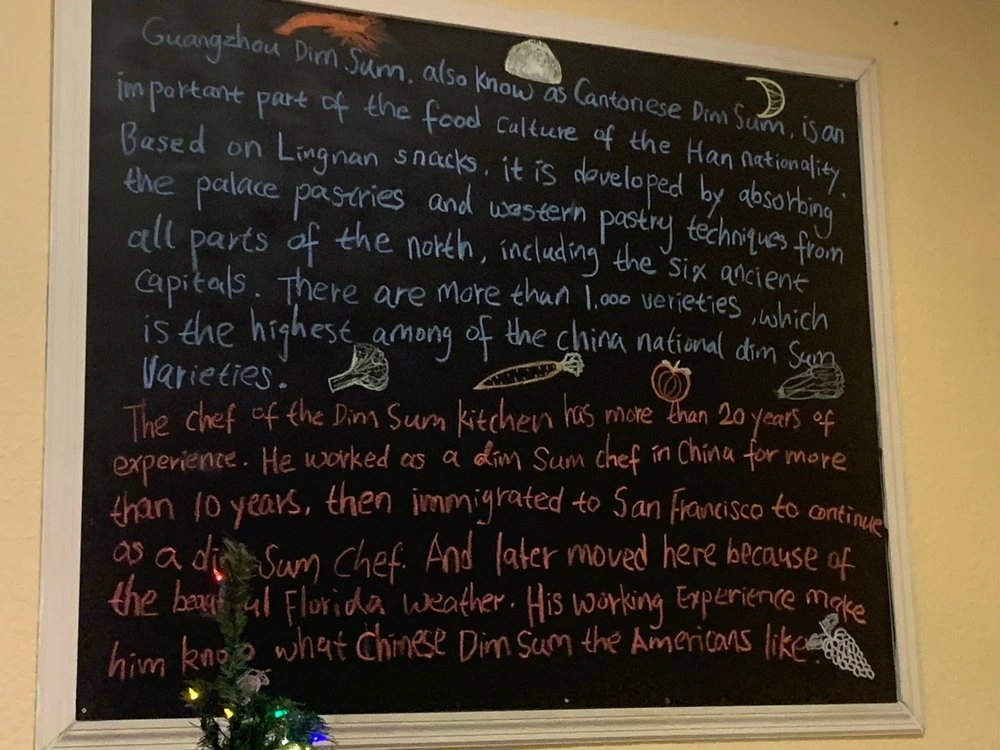 Guangzhou Dim Sum, also know as Cantonese Dim Sum, is an
important part of the food culture of the Han nationality.
Based on Lingnan snacks, it is developed by absorbing
the palace pastries and western pastry techniques from
all parts of the north, including the six ancient
capitals. There are more than 1,000 verieties, which
is the highest among of the china national dim Sum
Varieties.
The chef of the Dim Sum kitchen has more than 20 years of
experience. He worked as a dim Sum chef in China for more
than 10 years, then immigrated to San Francisco to continue
as a dim Sum Chef. And later moved here because of
the beautiful Florida weather. His working Experience make
him know what Chinese Dim Sum the Americans like.